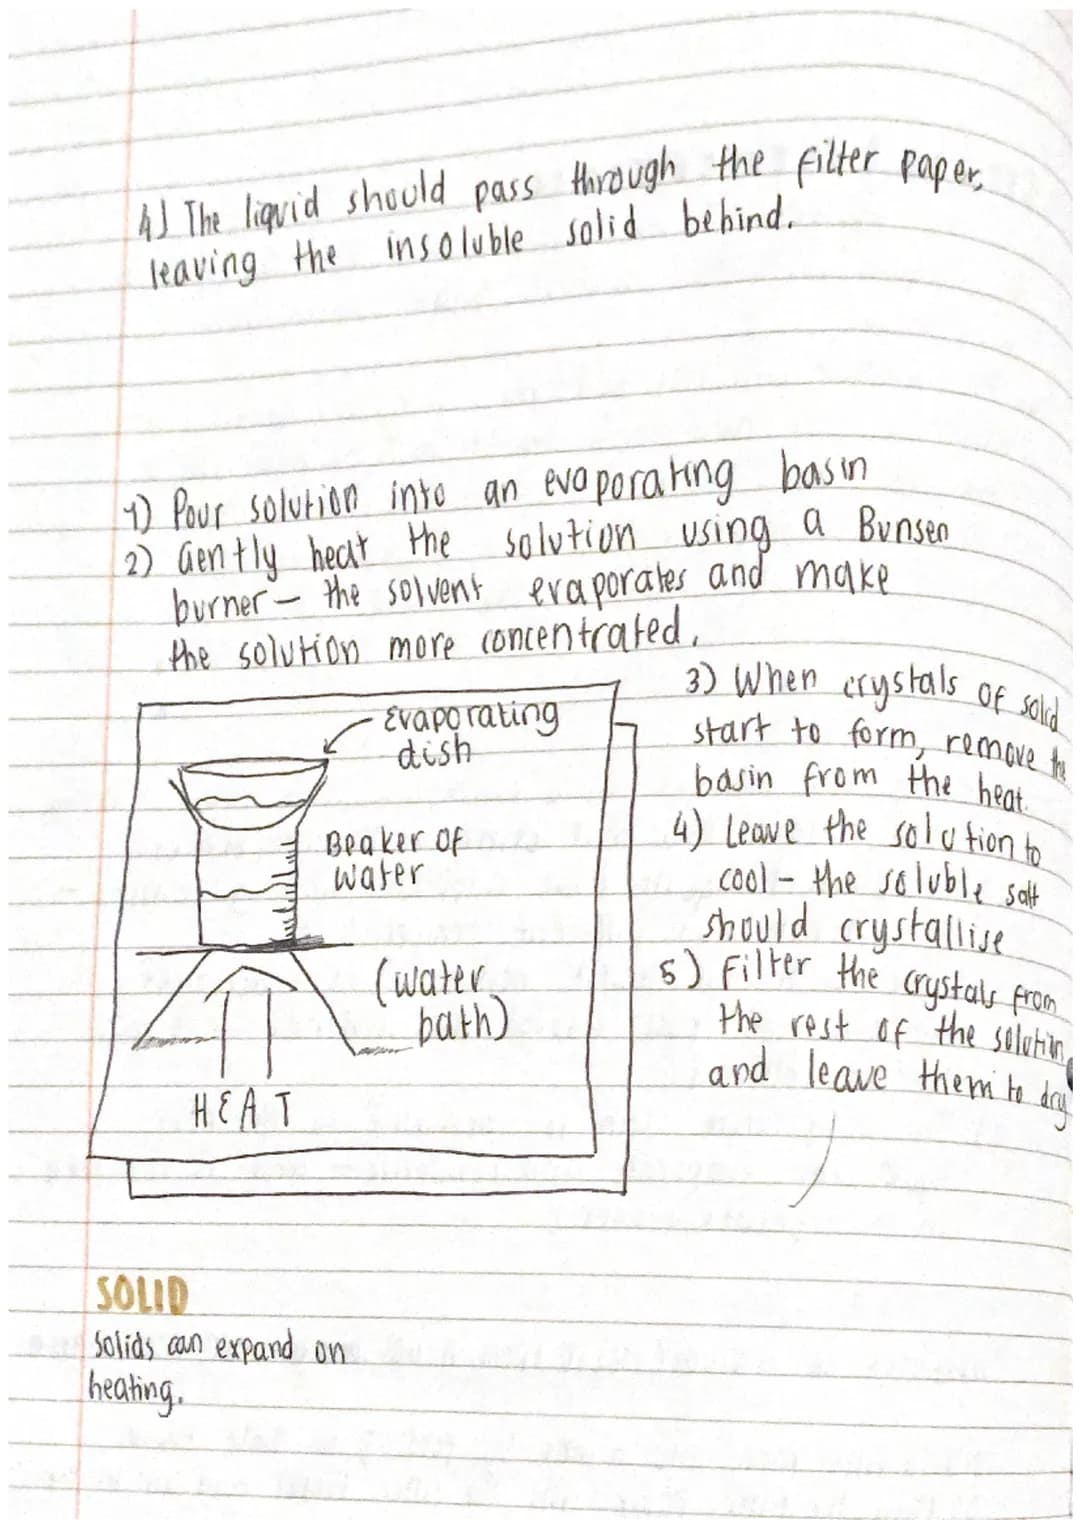 4) The liquid should pass through the filter paper,
leaving the insoluble solid behind.
1) Pour solution into an evaporating basin
2) Gently heat the solution using a Bunsen
burner – the solvent evaporates and make
the solution more concentrated.
3) When crystals of solid
start to form, remove the
basin from the heat.
4) Leave the solution to
cool – the soluble salt
should crystallise
5) Filter the crystals from
the rest of the solution
and leave them to dry
Evaporating
dish
Beaker of
water
(water
bath)
HEAT
SOLID
Solids can expand on
heating.